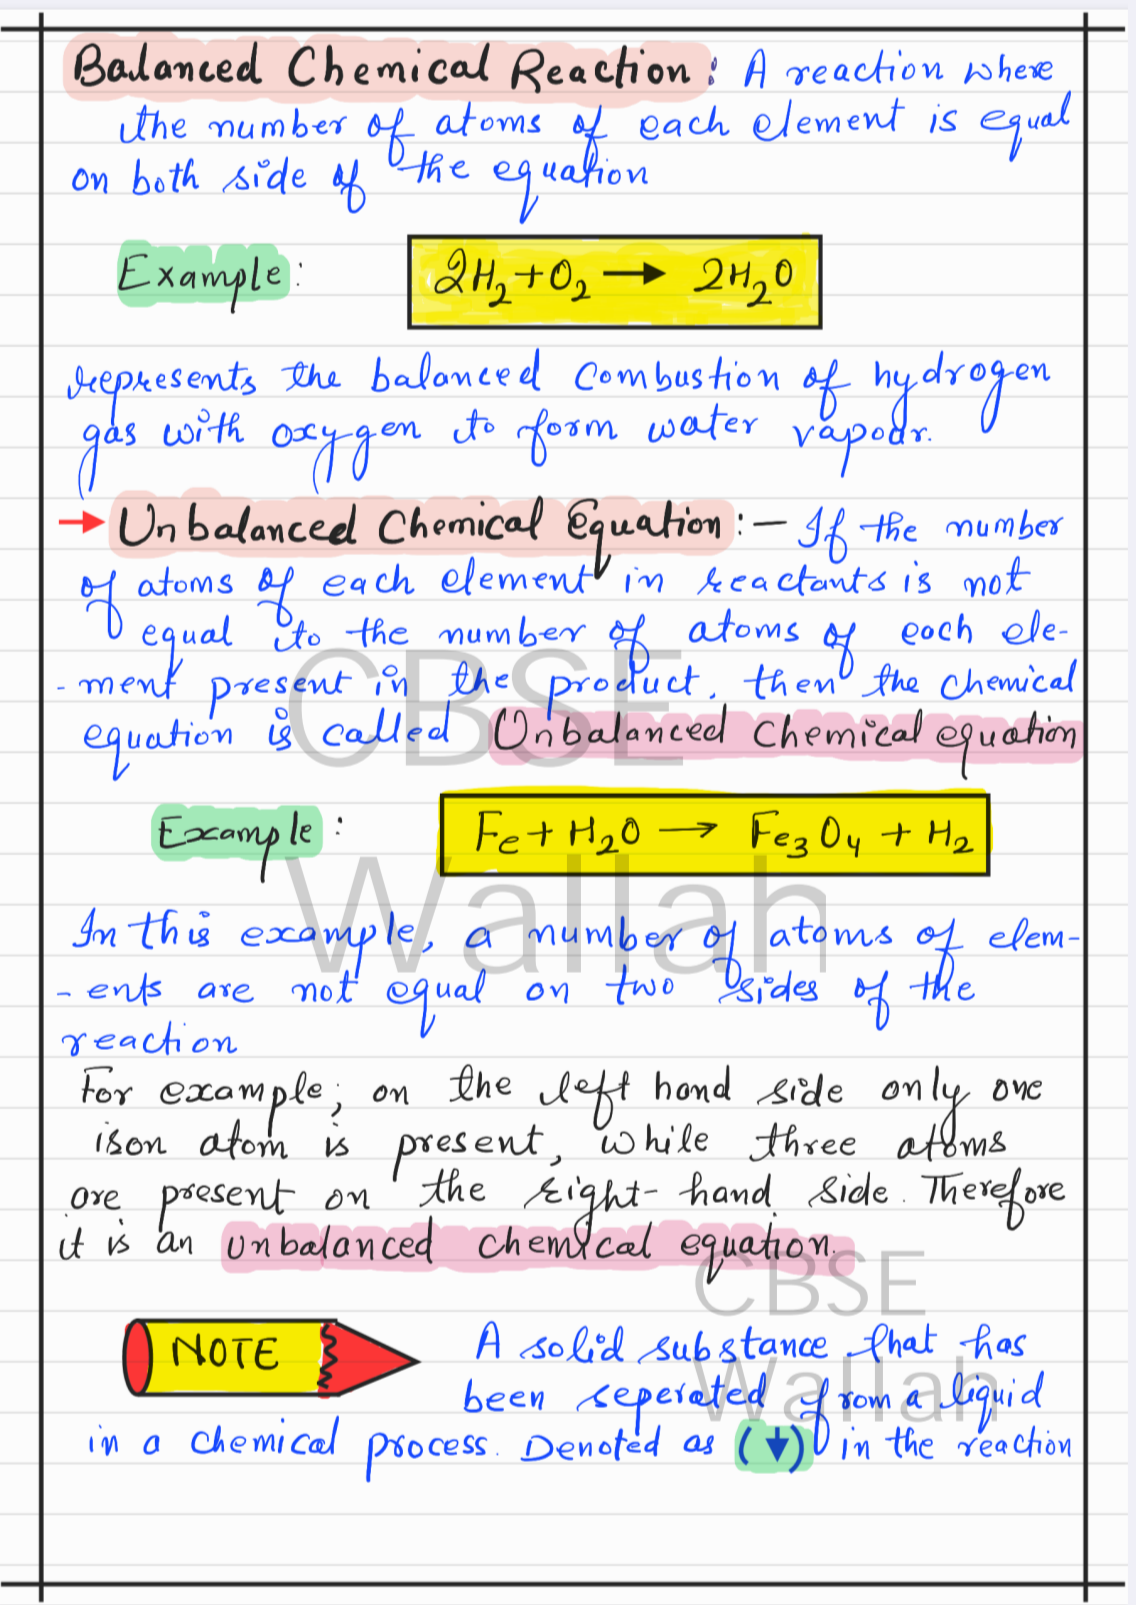 Balanced Chemical Reaction: A reaction where
the number of atoms of each element is equal
on both side of the equation
Example: 2H₂+O₂ → 2H₂O
represents the balanced combustion of hydrogen
gas with oxygen to form water vapour.
→ Unbalanced Chemical Equation:– If the number
of atoms of each element in reactants is not
equal to the number of atoms of each ele-
-ment present in the product, then the chemical
equation is called Unbalanced Chemical equation
Example: Fe + H₂O → Fe₃O₄ + H₂
In this example, a number of atoms of elem-
-ents are not equal on two sides of the
reaction
For example; on the left hand side only one
ison atom is present, while three atoms
are present on the right-hand side. Therefore
it is an unbalanced chemical equation.
NOTE A solid substance that has
been seperated from a liquid
in a chemical process. Denoted as (↓) in the reaction
CBSE
Wallah
CBSE
Wallah